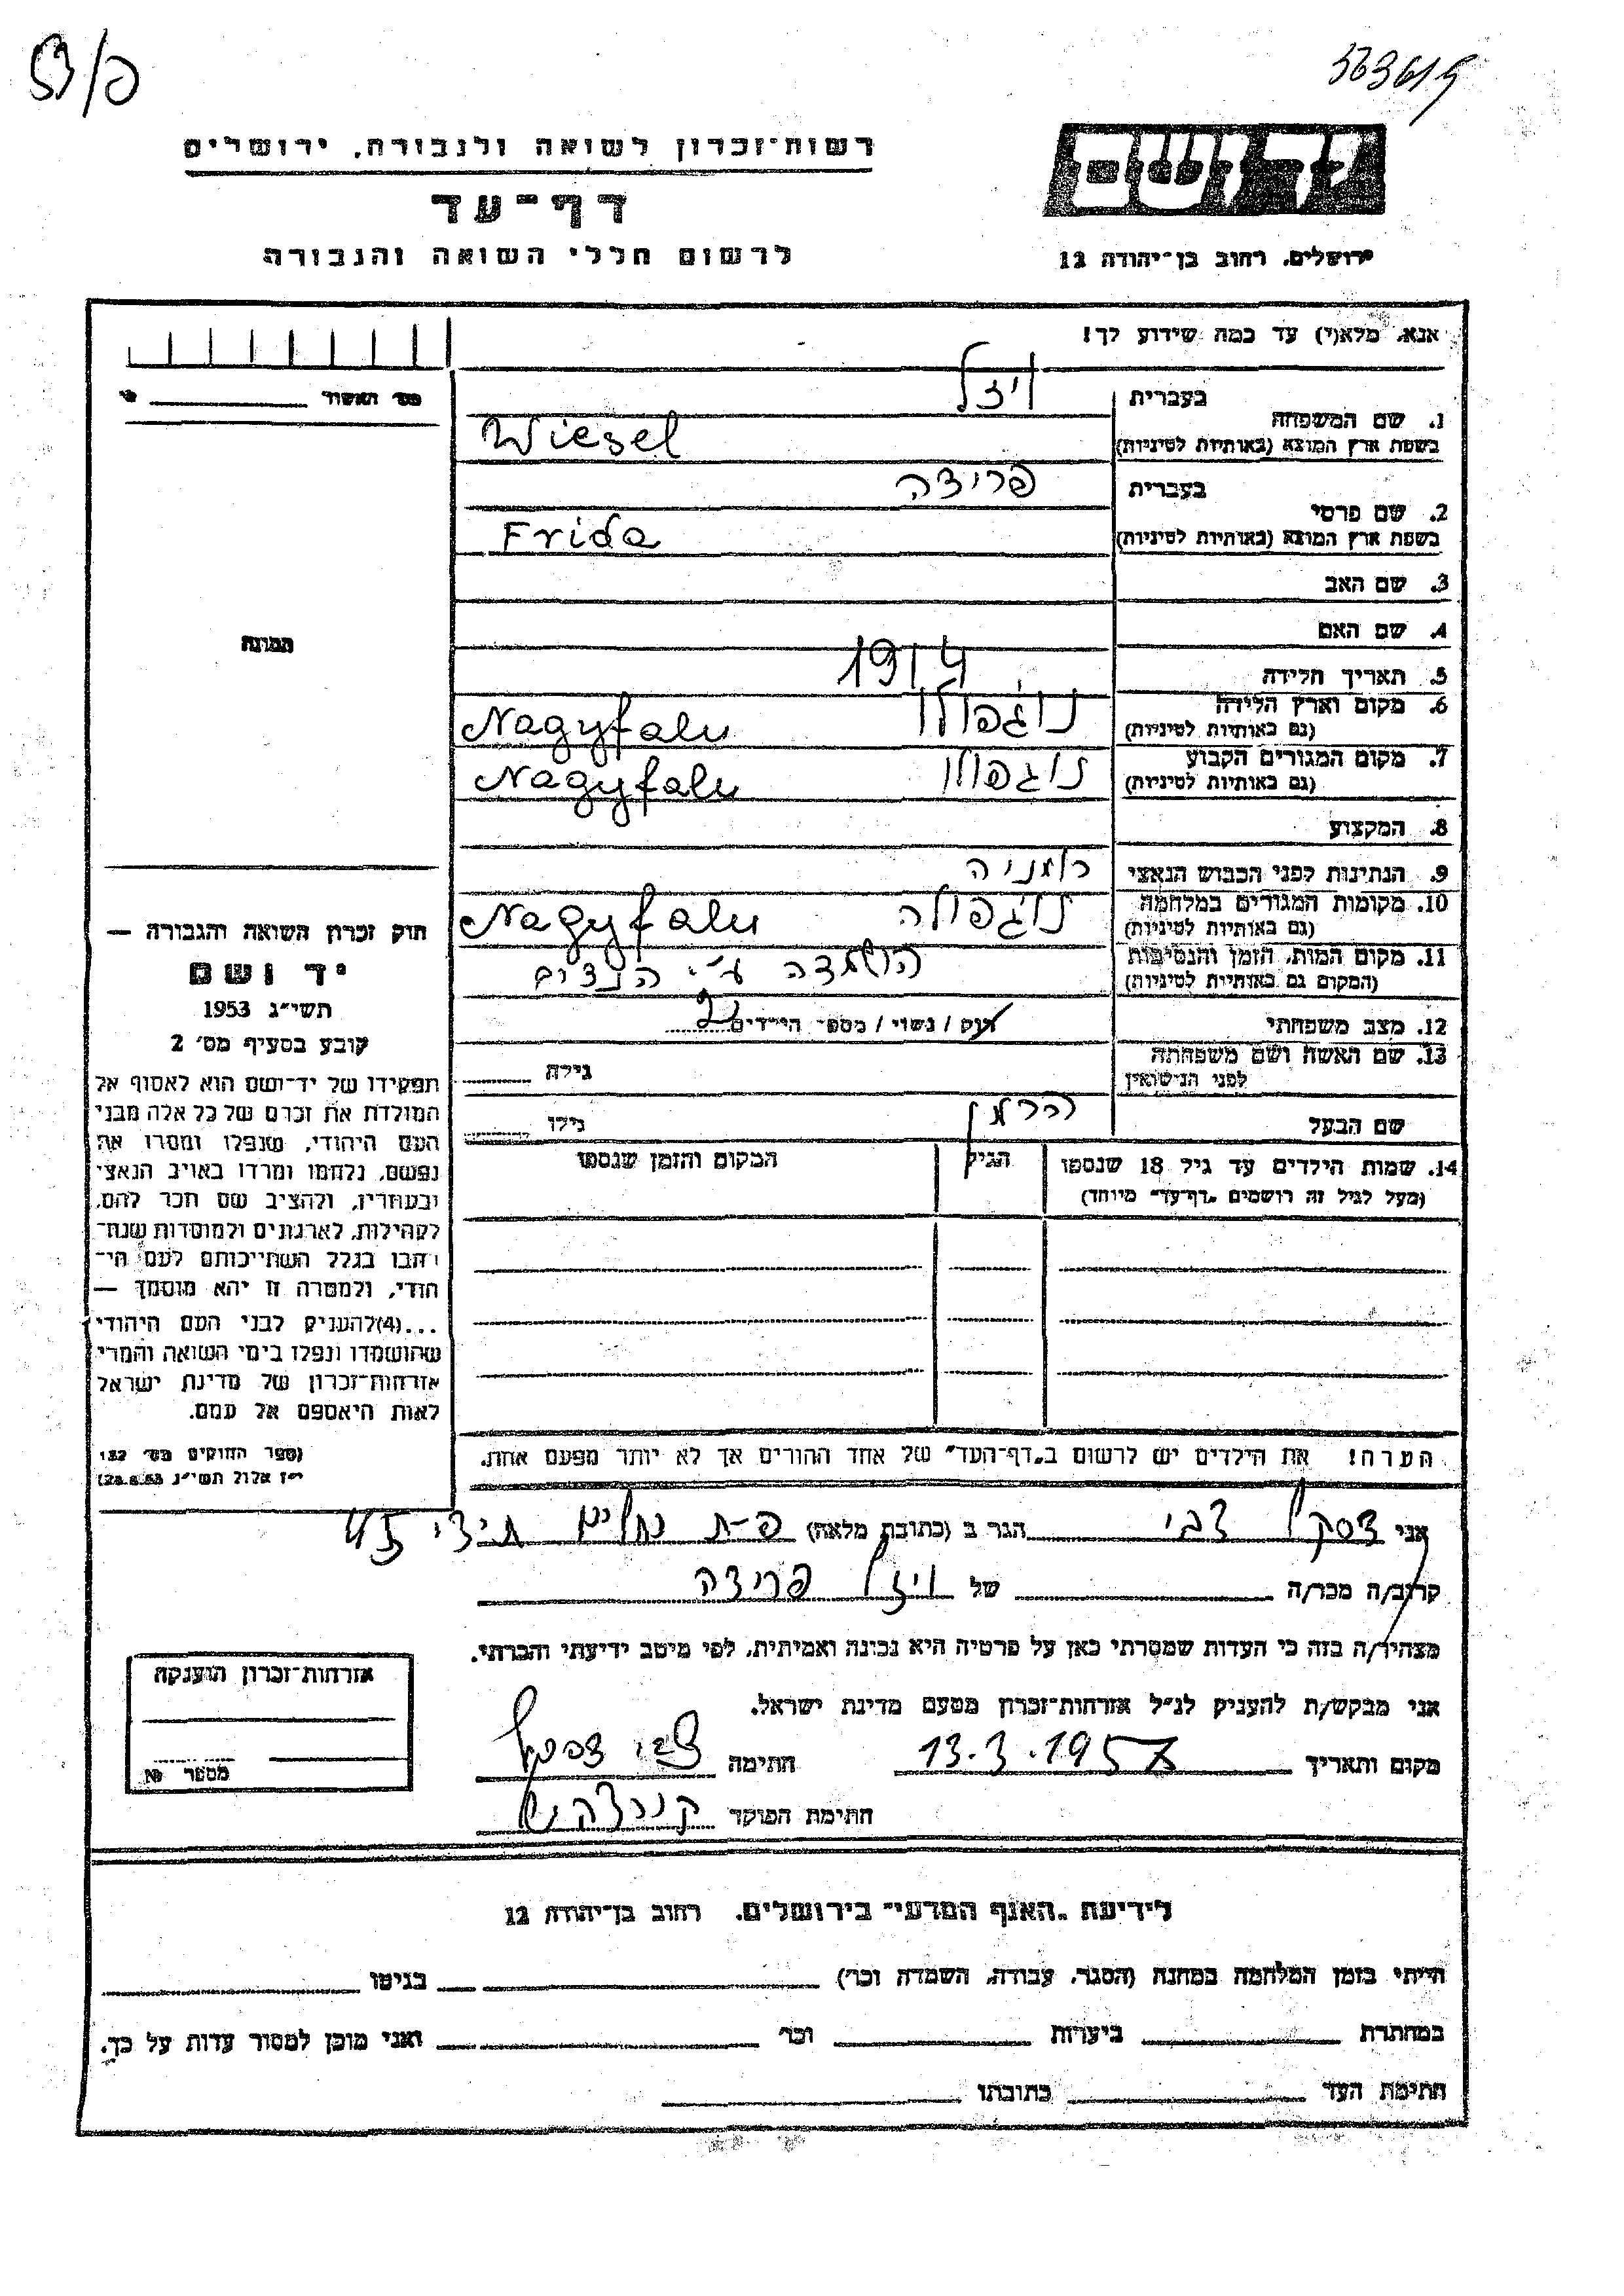 פ/53
363615
רשות־זכרון לשואה ולגבורה, ירושלים
דף־עד
לרשום חללי השואה והגבורה
יד ושם
ירושלים, רחוב בן־יהודה 12
אנא, מלא(י) עד כמה שידוע לך!
מס׳ האשור
1. שם המשפחה בעברית ויזל
בשפת ארץ המוצא (באותיות לטיניות) Wiesel
2. שם פרטי בעברית פרידה
בשפת ארץ המוצא (באותיות לטיניות) Frida
3. שם האב
4. שם האם
תמונה
5. תאריך הלידה 1914
6. מקום וארץ הלידה (גם באותיות לטיניות) נוג׳פולו Nagyfalu
7. מקום המגורים הקבוע (גם באותיות לטיניות) נוגפולו Nagyfalu
8. המקצוע
9. הנתינות לפני הכבוש הנאצי רומניה
10. מקומות המגורים במלחמה (גם באותיות לטיניות) נוג׳פולה Nagyfalu
11. מקום המות, הזמן והנסיבות (המקום גם באותיות לטיניות) הושמדה ע״י הנצים
12. מצב משפחתי רווק / נשוי / מספר הילדים 2
13. שם האשה ושם משפחתה לפני הנישואין גילה
שם הבעל הרמן גילו
14. שמות הילדים עד גיל 18 שנספו הגיל המקום והזמן שנספו
(מעל לגיל זה רושמים „דף־עד״ מיוחד)
חוק זכרון השואה והגבורה —
יד ושם
תשי״ג 1953
קובע בסעיף מס׳ 2
תפקידו של יד־ושם הוא לאסוף אל
המולדת את זכרם של כל אלה מבני
העם היהודי, שנפלו ומסרו את
נפשם, נלחמו ומרדו באויב הנאצי
ובעוזריו, ולהציב שם וזכר להם,
לקהילות, לארגונים ולמוסדות שנח־
רבו בגלל השתייכותם לעם הי־
הודי, ולמטרה זו יהא מוסמך —
...(4)להעניק לבני העם היהודי
שהושמדו ונפלו בימי השואה והמרי
אזרחות־זכרון של מדינת ישראל
לאות היאספם אל עמם.
(ספר החוקים מס׳ 132
י״ז אלול תשי״ג 28.8.53)
הערה! את הילדים יש לרשום ב„דף־העד״ של אחד ההורים אך לא יותר מפעם אחת.
אני צבי הגר ב (כתובת מלאה) פ-ת
קרוב/ה מכר/ה של ויזל פרידה
מצהיר/ה בזה כי העדות שמסרתי כאן על פרטיה היא נכונה ואמיתית, לפי מיטב ידיעתי והכרתי.
אני מבקש/ת להעניק לנ״ל אזרחות־זכרון מטעם מדינת ישראל.
מקום ותאריך 13.3.195 חתימה צבי
חתימת הפוקד
אזרחות־זכרון הוענקה
מספר №
לידיעת „האגף המדעי״ בירושלים, רחוב בן־יהודה 12
הייתי בזמן המלחמה במחנה (הסגר, עבודה, השמדה וכו׳) בגיטו
במחתרת ביערות וכו׳ ואני מוכן למסור עדות על כך.
חתימת העד כתובתו